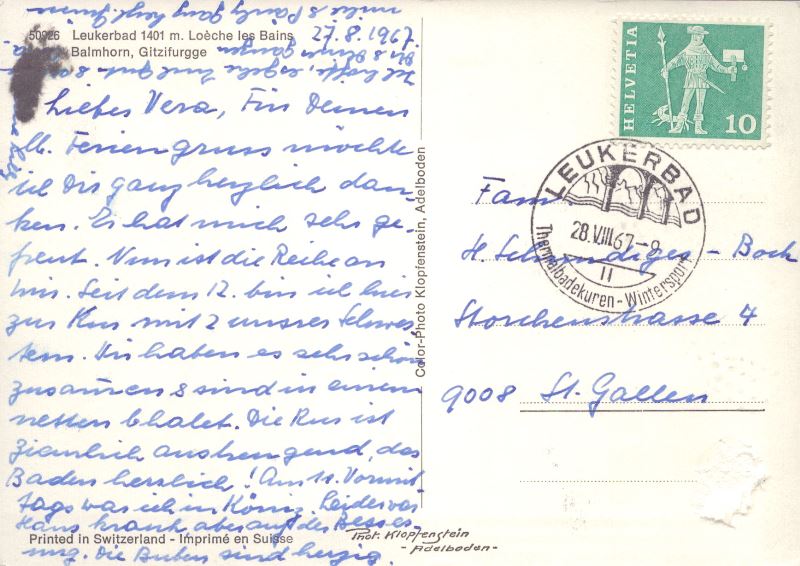 50926 Leukerbad 1401 m. Loèche les Bains
Balmhorn, Gitzifurgge
27.8.1967
Liebes Vera, Für Deinen
lb. Feriengruss möchte
ich Dir ganz herzlich dan-
ken. Es hat mich sehr ge-
freut. Nun ist die Reihe an
mir. Seit dem 12. bin ich hier
zur Kur mit 2 unsrer Schwes-
tern. Wir haben es sehr schön
zusammen & sind in einem
netten Chalet. Die Kur ist
ziemlich anstrengend, das
Baden herrlich! Am 11. Vormit-
tags war ich in Köniz. Leider war
Hans krank aber auf der Besse-
rung. Die Buben sind herzig.
Ich hoffe, es gehe Euch gut
Printed in Switzerland - Imprimé en Suisse
Color-Photo Klopfenstein, Adelboden
Phot. Klopfenstein
- Adelboden -
HELVETIA
10
LEUKERBAD
28.VIII.67-9
11
Thermalbadekuren - Wintersport
Fam.
H. Schwendiger - Bock
Storchenstrasse 4
9008 St. Gallen